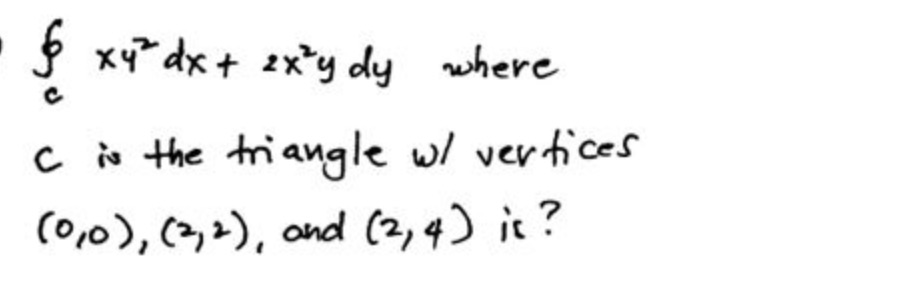 ∮_C xy² dx + 2x²y dy where
C is the triangle w/ vertices
(0,0), (2,2), and (2,4) is?